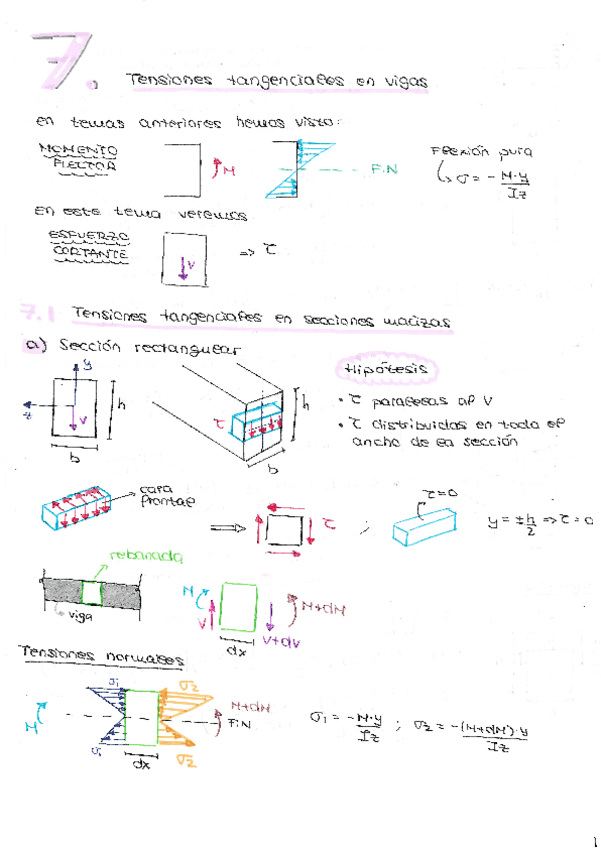 7. Tensiones tangenciales en vigas
en temas anteriores hemos visto:
MOMENTO
FLECTOR
M
F.N
Flexión pura
σ = - M·y / Iz
En este tema veremos
ESFUERZO
CORTANTE
V
=> τ
7.1 Tensiones tangenciales en secciones macizas
a) Sección rectangular
y
z
V
h
b
τ
h
b
Hipótesis
• τ paralelas al V
• τ distribuidas en todo el
ancho de la sección
cara
frontal
τ
;
τ=0
y = ± h/2 => τ = 0
rebanada
viga
M
V
M+dM
V+dV
dx
Tensiones normales
M
σ1
σ1
dx
σ2
σ2
M+dM
F.N
σ1 = -M·y / Iz ; σ2 = -(M+dM)·y / Iz
1